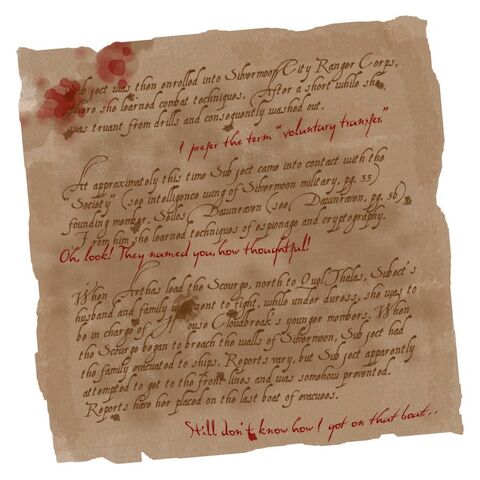 Subject was then enrolled into Silvermoon City Ranger Corps,
where she learned combat techniques. After a short while she
was truant from drills and consequently washed out.
I prefer the term "voluntary transfer."
At approximately this time Subject came into contact with the
"Society" (see intelligence wing of Silvermoon military, pg. 33)
founding member, Dawnraven (see Dawnraven, pg. 56).
From him she learned techniques of espionage and cryptography.
Oh, look! They named you, how thoughtful!
When Arthas lead the Scourge, north to Quel'Thalas, Subect's
husband and family sent to fight, while under duress, she was to
be in charge of House Cloudbreak's younger members. When
the Scourge began to breach the walls of Silvermoon, Subject had
the family evacuated to ships. Reports vary, but Subject apparently
attempted to get to the front lines and was somehow prevented.
Reports have her placed on the last boat of evacuees.
Still don't know how I got on that boat...